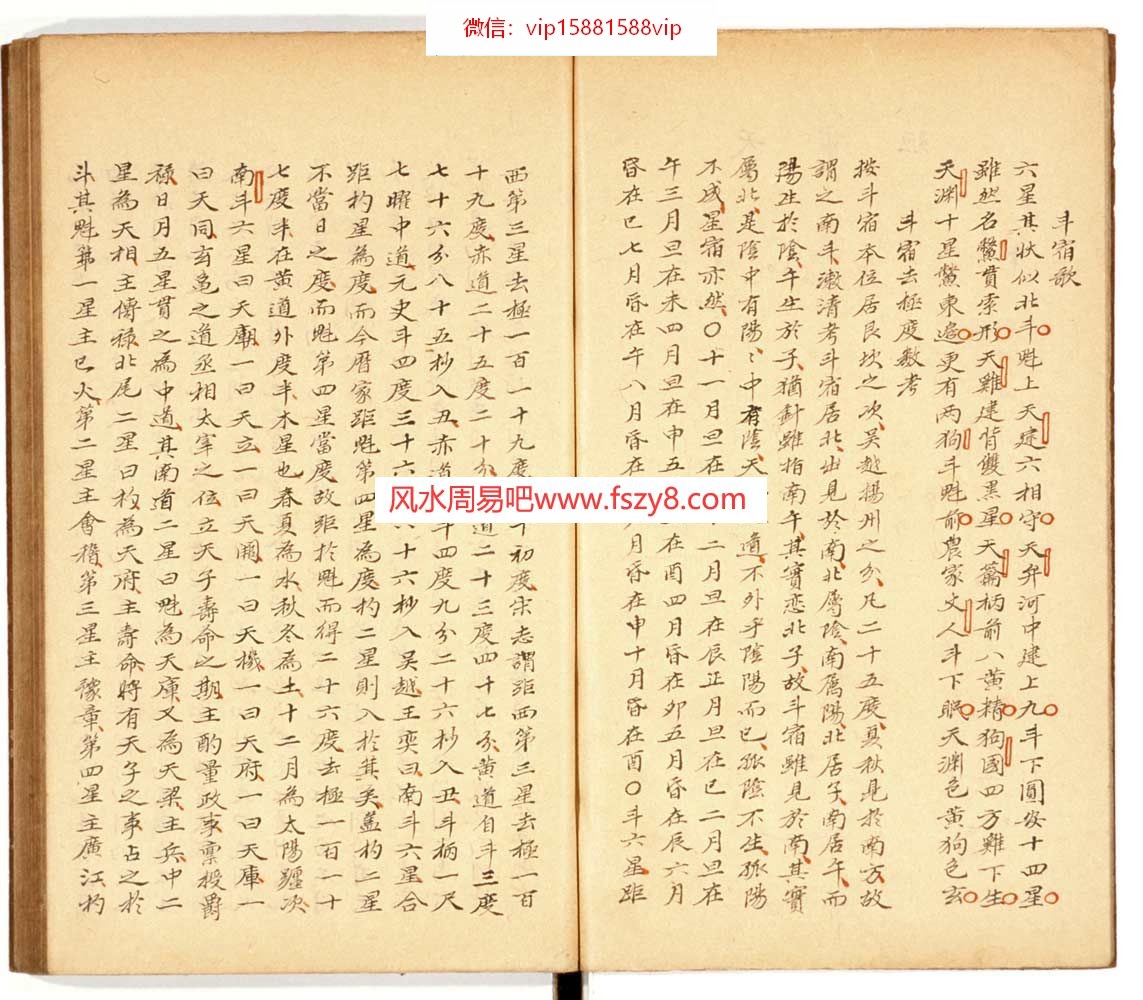 微信：vip15881588vip
斗宿歌
六星其狀似北斗魁上天建六相守天弁河中建上九斗下圓安十四星
雖然名鱉貫索形天雞建背雙黑星天籥柄前八黃精狗國四方雞下生
天淵十星鱉東邉更有兩狗斗魁前農家丈人斗下眠天淵色黃狗色玄
斗宿去極度数考
按斗宿本位居艮坎之次吴越揚州之分凡二十五度夏秋見於南方故
謂之南斗澂清考斗宿居北出見於南北属陰南属陽北居子南居午而
陽生於陰午生於子猶針雖指南午其實恋北子故斗宿雖見於南其實
屬北是陰中有陽〻中有陰天 道不外乎陰陽而已孤陰不生孤陽
不成星宿亦然〇十一月旦在 二月旦在辰正月旦在巳二月旦在
午三月旦在未四月旦在申五 在酉四月昏在卯五月昏在辰六月
昏在巳七月昏在午八月昏在 月昏在申十月昏在酉〇斗六星距
西第三星去極一百一十九度 初度宋志謂距西第三星去極一百
十九度赤道二十五度二十分 道二十三度四十七分黃道自斗三度
七十六分八十五秒入丑赤道 斗四度九分二十六秒入丑斗柄一尺
七曜中道元史斗四度三十六 六十六秒入吴越王奕曰南斗六星合
距杓星為度而今曆家距魁第四星為度杓二星則入於箕矣蓋杓二星
不當日之度而魁第四星當度故距於魁而得二十六度去極一百一十
七度半在黃道外度半木星也春夏為水秋冬為土十二月為太陽躔次
南斗六星曰天廟一曰天立一曰天関一曰天機一曰天府一曰天庫一
曰天同玄龜之道丞相太宰之位立天子壽命之期主酌量政事禀授爵
禄日月五星貫之為中道其南道二星曰魁為天庫又為天梁主兵中二
星為天相主傳禄北尾二星曰杓為天府主壽命將有天子之事占之於
斗其魁第一星主巳火第二星主會稽第三星主豫章第四星主廣江杓
风水周易吧www.fszy8.com